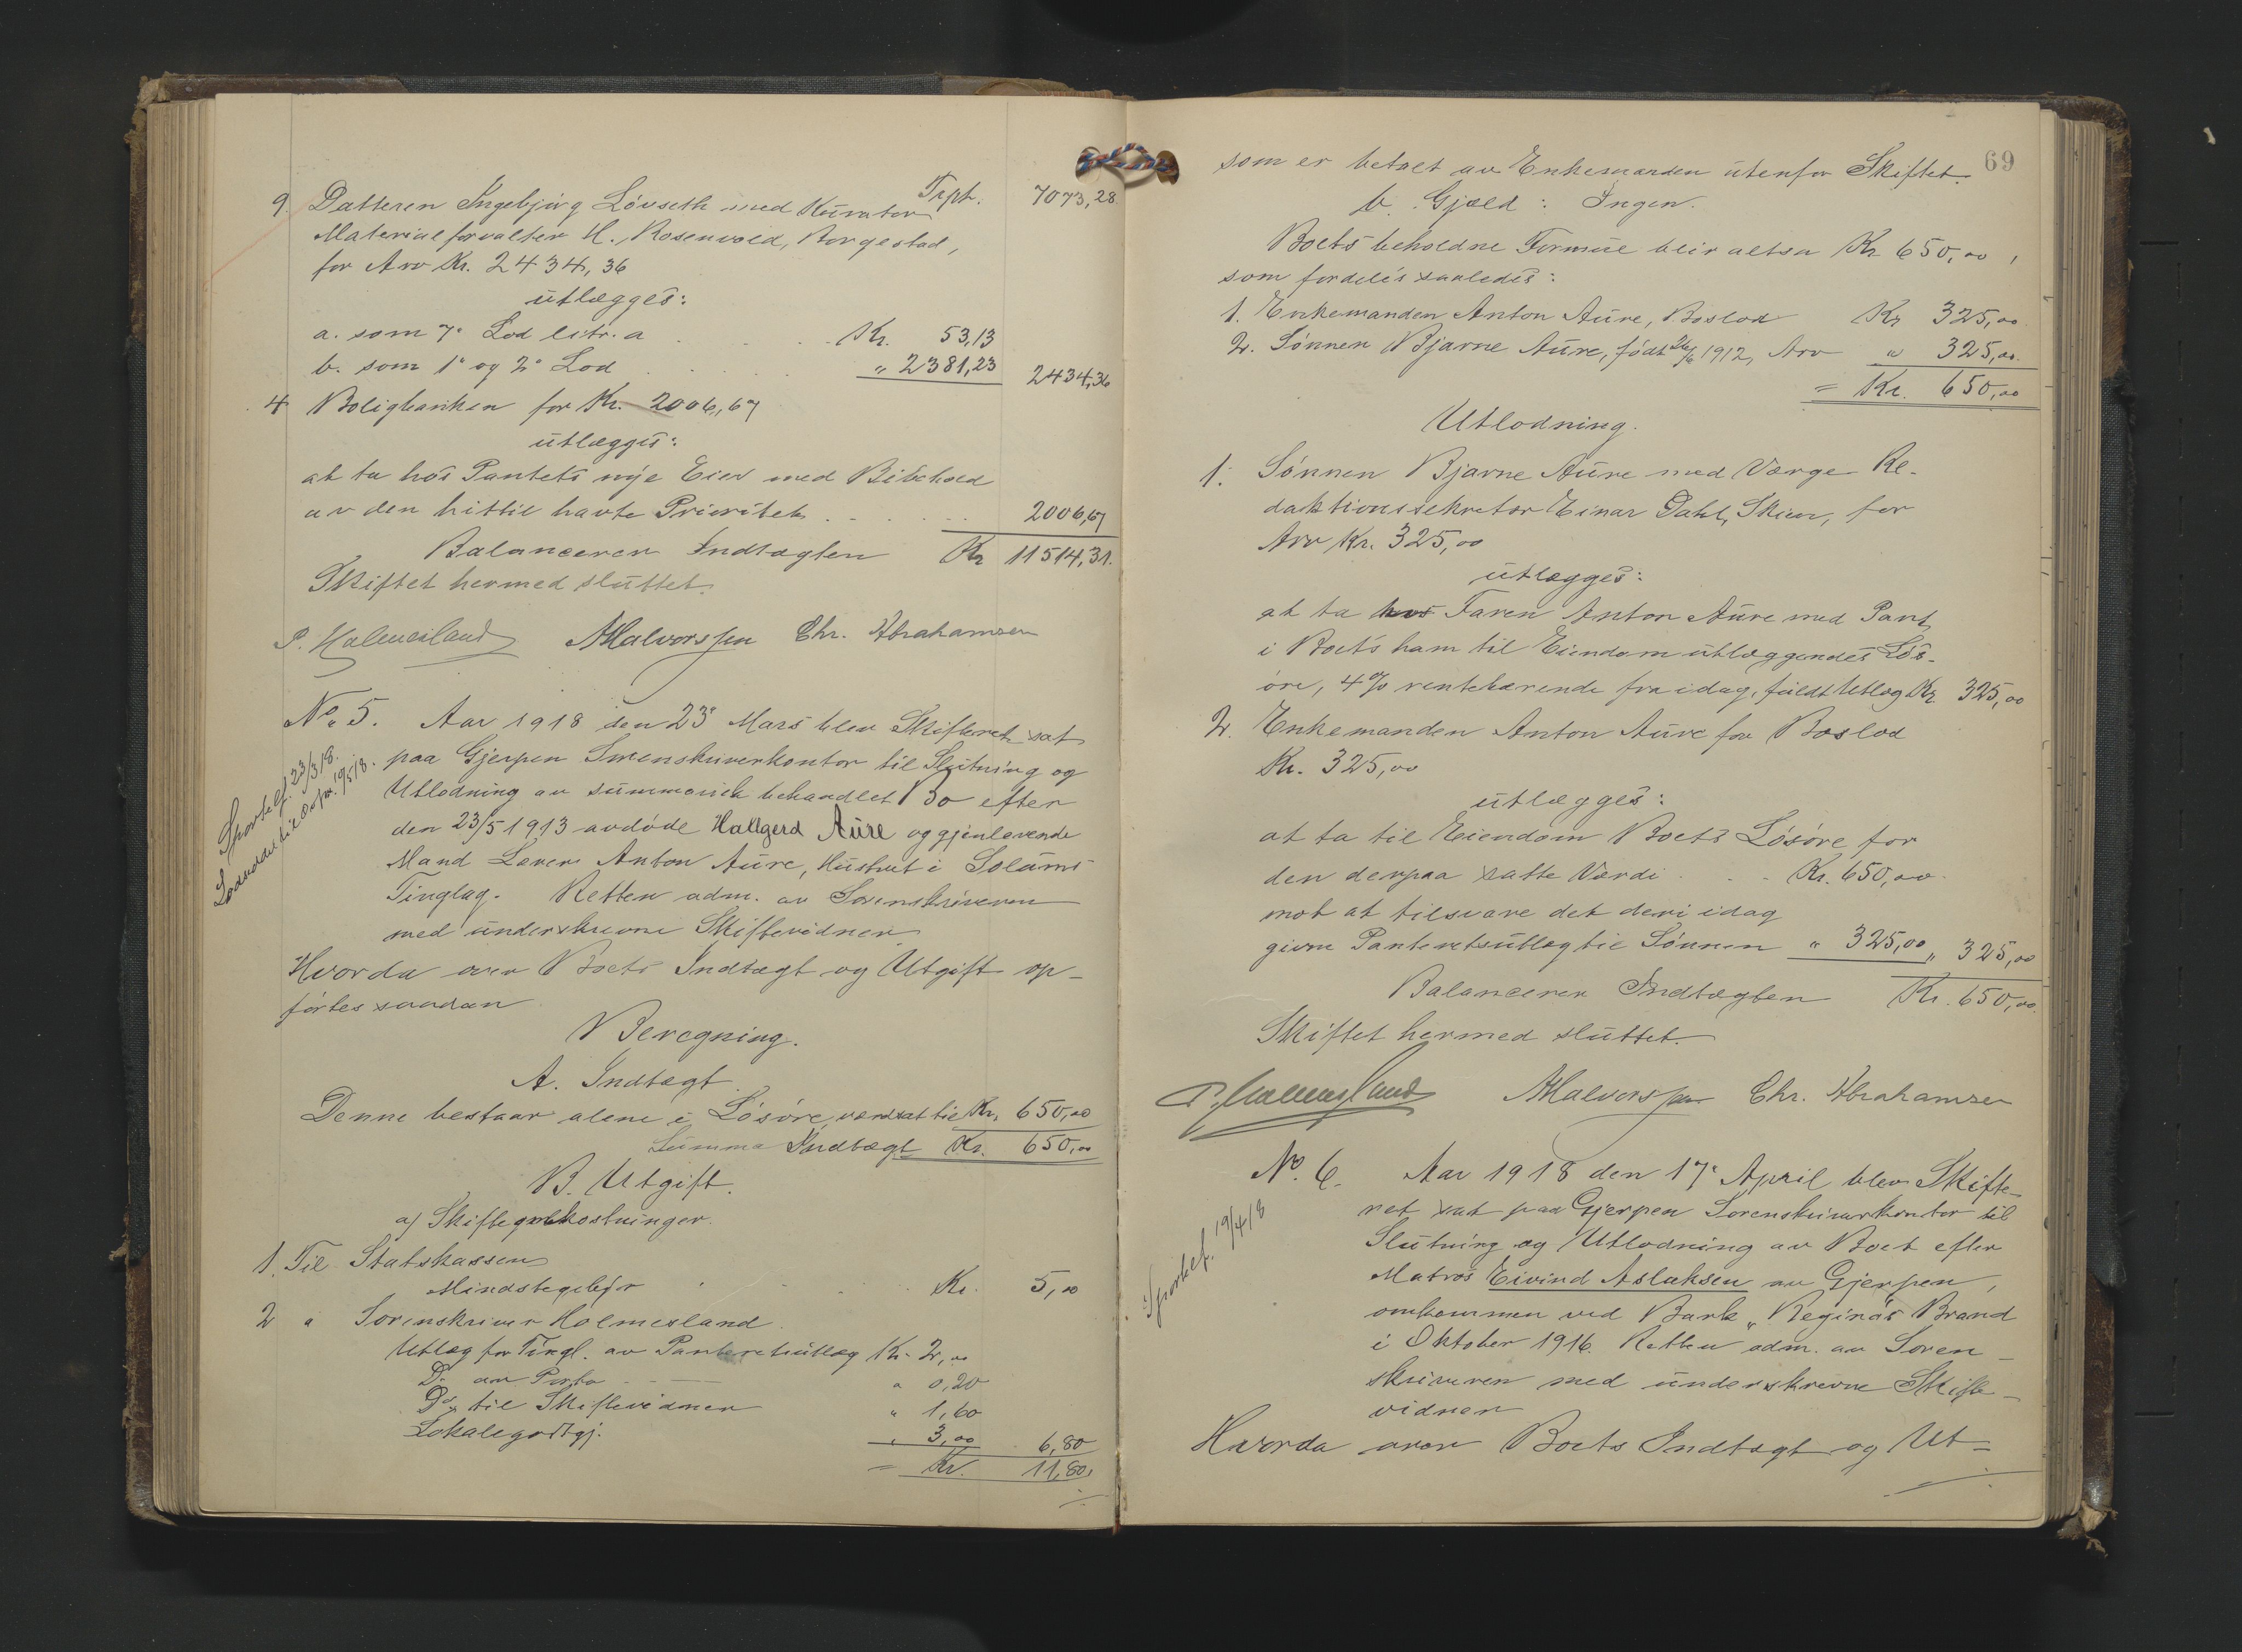 Trpt. 7073,28.
9. Datteren Ingebjørg Løvseth med Kurator
Materialforvalter H. Rosenvold, Borgestad,
for Arv Kr. 2434,36
utlægges:
a. som 7° Lod litr. a . . . . Kr. 53,13
b. som 1° og 2° Lod . . . . " 2381,23 2434,36
4 Boligbanken for Kr. 2006,67
utlægges:
at ta hos Pantets nye Eier med Bibehold
av den hittil havte Prioritet . . . . 2006,67
Balancerer Indtægten Kr 11514,31.
Skiftet hermed sluttet.
P. Holmesland AHalvorssen Chr. Abrahamsen
No. 5. Aar 1918 den 23' Mars blev Skifteret sat
paa Gjerpen Sorenskriverkontor til Slutning og
Utlodning av summarisk behandlet Bo efter
den 23/5 1913 avdøde Hallgerd Aure og gjenlevende
Mand Lærer Anton Aure, Hustrut i Solums
Tinglag. Retten adm. av Sorenskriveren
med underskrevne Skiftevidner.
Sportelf. 23/3 18.
Hvorda over Boets Indtægt og Utgift op-
førtes saadan
Beregning.
A. Indtægt.
Denne bestaar alene i Løsøre, værdsat til Kr. 650,00
Summa Indtægt Kr. 650,00
B. Utgift.
a) Skifteomkostninger.
1. Til Statskassen
Mindstegebyr . . . . Kr. 5,00
2 " Sorenskriver Holmesland.
Utlæg for Tingl. av Panteretsutlæg Kr. 2,00
Do av Porto " 0,20
Do til Skiftevidner " 1,60
Lokalegodtgj. " 3,00 6,80
= Kr. 11,80.
69
som er betalt av Enkemanden utenfor Skiftet.
b. Gjæld: Ingen.
Boets beholdne Formue blir altsaa Kr 650,00,
som fordeles saaledes:
1. Enkemanden Anton Aure, Boslod Kr 325,00
2. Sønnen Bjarne Aure, født 1912, Arv " 325,00.
= Kr. 650,00
Utlodning.
1. Sønnen Bjarne Aure med Værge Re-
daktionssekretær Einar Dahl, Skien, for
Arv Kr. 325,00
utlægges:
at ta hos Faren Anton Aure med Pant
i Boets ham til Eiendom utlæggendes Løs-
øre, 4% rentebærende fra idag, fuldt Utlæg Kr. 325,00
2. Enkemanden Anton Aure for Boslod
Kr. 325,00
utlægges:
at ta til Eiendom Boets Løsøre for
den derpaa satte Værdi . . . Kr. 650,00
mot at tilsvare det deri idag
givne Panteretsutlæg til Sønnen " 325,00 " 325,00
Balancerer Indtægten Kr. 650,00.
Skiftet hermed sluttet.
P. Holmesland AHalvorssen Chr. Abrahamsen
No. 6. Aar 1918 den 17' April blev Skifte-
ret sat paa Gjerpen Sorenskriverkontor til
Slutning og Utlodning av Boet efter
Matros Eivind Aslaksen av Gjerpen,
omkommen ved Bark "Regina's Brand
i Oktober 1916. Retten adm. av Soren-
skriveren med underskrevne Skifte-
vidner
Sportelf. 19/4 18
Hvorda over Boets Indtægt og Ut-